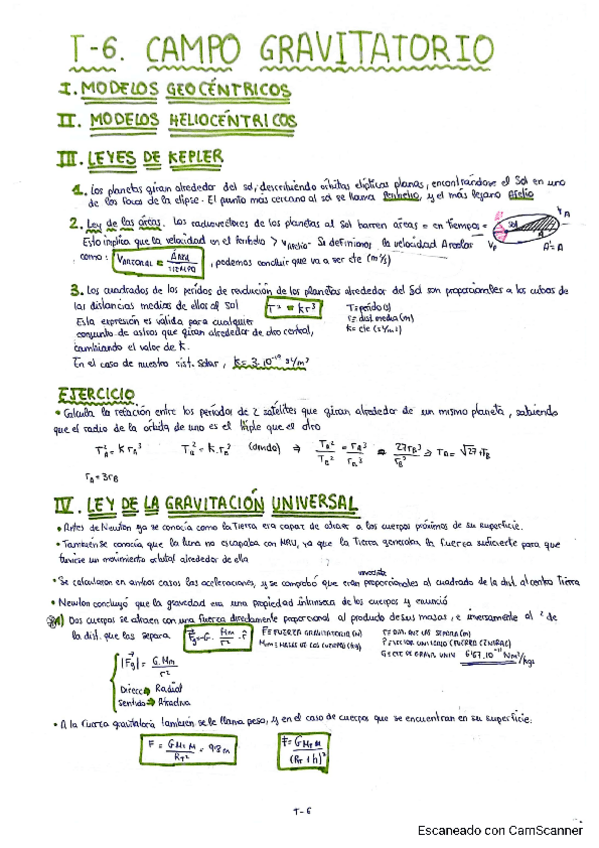 T-6. CAMPO GRAVITATORIO
I. MODELOS GEOCÉNTRICOS
II. MODELOS HELIOCÉNTRICOS
III. LEYES DE KEPLER
1. Los planetas giran alrededor del sol, describiendo órbitas elípticas planas, encontrándose el Sol en uno
de los focos de la elipse. El punto más cercano al sol se llama Perihelio, y el más lejano Afelio
2. Ley de las áreas. Los radiovectores de los planetas al Sol barren áreas = en tiempos =
Esto implica que la velocidad en el Perihelio > V Afelio. Si definimos la velocidad Areolar
como: V AREOLAR = ÁREA / TIEMPO, podemos concluir que va a ser cte (m²/s)
3. Los cuadrados de los períodos de revolución de los planetas alrededor del Sol son proporcionales a los cubos de
las distancias medias de ellos al sol T² = Kr³ T= período (s)
Esta expresión es válida para cualquier r= dist. media (m)
conjunto de astros que giran alrededor de otro central, K= cte (s²/m³)
cambiando el valor de K.
En el caso de nuestro sist. Solar, K= 3·10⁻¹⁹ s²/m³
EJERCICIO
• Calcula la relación entre los períodos de 2 satélites que giran alrededor de un mismo planeta, sabiendo
que el radio de la órbita de uno es el triple que el otro
T_A² = K r_A³ T_B² = K r_B³ (divido) ⇒ T_A²/T_B² = r_A³/r_B³ = 27r_B³/r_B³ ⇒ T_A = √27 · T_B
r_A = 3r_B
IV. LEY DE LA GRAVITACIÓN UNIVERSAL
• Antes de Newton ya se conocía como la Tierra era capaz de atraer a los cuerpos próximos de su superficie.
• También se conocía que la luna no escapaba con MRU, ya que la Tierra generaba la fuerza suficiente para que
tuviese un movimiento orbital alrededor de ella
• Se calcularon en ambos casos las aceleraciones, y se comprobó que eran inversam. proporcionales al cuadrado de la dist. al centro Tierra
• Newton concluyó que la gravedad era una propiedad intrínseca de los cuerpos y enunció
Dos cuerpos se atraen con una fuerza directamente proporcional al producto de sus masas, e inversamente al ² de
la dist. que los separa F= FUERZA GRAVITATORIA (N) r= DIST. QUE LOS SEPARA (m)
Fg = -G· Mm/r² · r M,m= MASAS DE LOS CUERPOS (kg) r= VECTOR UNITARIO (FUERZA CENTRAL)
G= CTE DE GRAVIT. UNIV. 6'67·10⁻¹¹ Nm²/kg²
|Fg| = G·Mm / r²
Direcc → Radial
Sentido → Atractiva
• A la fuerza gravitatoria también se le llama peso, y en el caso de cuerpos que se encuentran en su superficie:
F = G M_T m / R_T² = 9'8 m F = G M_T m / (R_T + h)²
T-6
Escaneado con CamScanner